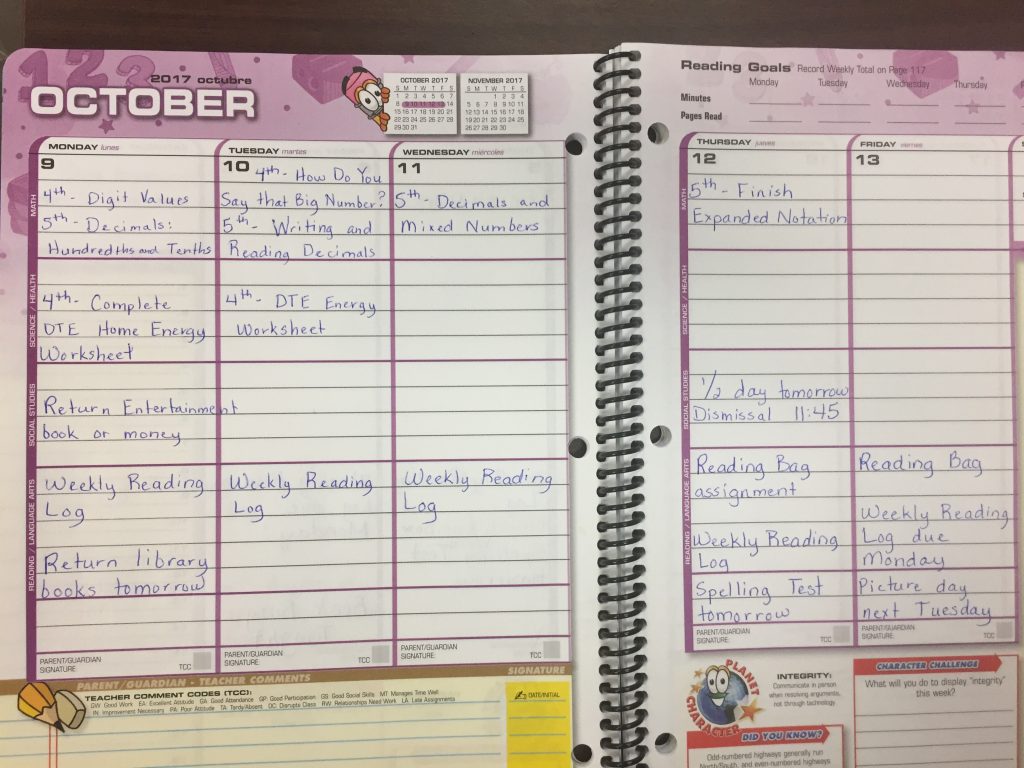 2017 octubre
OCTOBER
OCTOBER 2017
S M T W T F S
1 2 3 4 5 6 7
8 9 10 11 12 13 14
15 16 17 18 19 20 21
22 23 24 25 26 27 28
29 30 31
NOVEMBER 2017
S M T W T F S
1 2 3 4
5 6 7 8 9 10 11
12 13 14 15 16 17 18
19 20 21 22 23 24 25
26 27 28 29 30
MONDAY lunes
9
MATH
4th- Digit Values
5th- Decimals:
Hundredths and Tenths
SCIENCE / HEALTH
4th- Complete
DTE Home Energy
Worksheet
SOCIAL STUDIES
Return Entertainment
book or money
READING / LANGUAGE ARTS
Weekly Reading
Log
Return library
books tomorrow
PARENT/GUARDIAN
SIGNATURE
TCC
TUESDAY martes
10 4th- How Do You
Say that Big Number?
5th- Writing and
Reading Decimals
4th- DTE Energy
Worksheet
Weekly Reading
Log
PARENT/GUARDIAN
SIGNATURE
TCC
WEDNESDAY miércoles
11
5th- Decimals and
Mixed Numbers
Weekly Reading
Log
PARENT/GUARDIAN
SIGNATURE
TCC
PARENT/GUARDIAN - TEACHER COMMENTS
SIGNATURE
TEACHER COMMENT CODES (TCC):
GP: Good Participation GS: Good Social Skills MT: Manages Time Well
GW: Good Work EA: Excellent Attitude GA: Good Attendance
IN: Improvement Necessary PA: Poor Attitude TA: Tardy/Absent DC: Disrupts Class RW: Relationships Need Work LA: Late Assignments
DATE/INITIAL
Reading Goals Record Weekly Total on Page 117
Monday Tuesday Wednesday Thursday
Minutes
Pages Read
THURSDAY jueves
12
MATH
5th- Finish
Expanded Notation
SCIENCE / HEALTH
SOCIAL STUDIES
1/2 day tomorrow
Dismissal 11:45
READING / LANGUAGE ARTS
Reading Bag
assignment
Weekly Reading
Log
Spelling Test
tomorrow
PARENT/GUARDIAN
SIGNATURE
TCC
FRIDAY viernes
13
Reading Bag
Weekly Reading
Log due
Monday
Picture day
next Tuesday
PARENT/GUARDIAN
SIGNATURE
TCC
PLANET
CHARACTER
INTEGRITY:
Communicate in person
when resolving arguments,
not through technology
DID YOU KNOW?
Odd-numbered highways generally run
North/South, and even-numbered highways
CHARACTER CHALLENGE
What will you do to display "integrity"
this week?